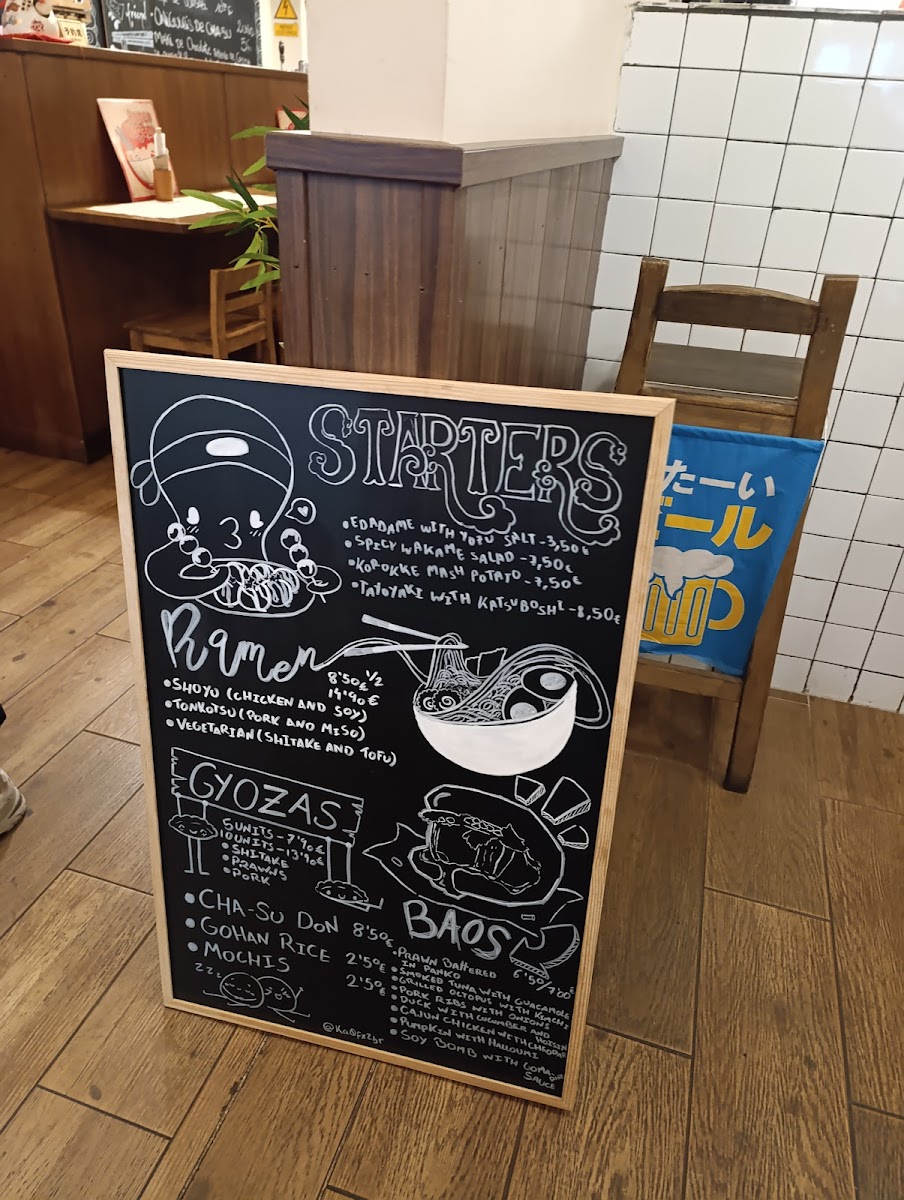 ONIGIRIS DE CHASU
STARTERS
• EDADAME WITH YUZU SALT - 3,50€
• SPICY WAKAME SALAD - 7,50€
• KOROKKE MASH POTATO - 7,50€
• TATOYAKI WITH KATSUBOSHI - 8,50€
Ramen
8'50€ 1/2
14'90€
• SHOYU (CHICKEN AND SOY)
• TONKOTSU (PORK AND MISO)
• VEGETARIAN (SHITAKE AND TOFU)
GYOZAS
5 UNITS - 7'90€
10 UNITS - 13'90€
• SHITAKE
• PRAWNS
• PORK
• CHA-SU DON 8'50€
• GOHAN RICE 2'50€
• MOCHIS 2'50€
zzz
BAOS
6'50/7'00€
• PRAWN BATTERED
IN PANKO
• SMOKED TUNA WITH GUACAMOLE
• GRILLED OCTOPUS WITH KIMCHI
• PORK RIBS WITH ONIONS
• DUCK WITH CUCUMBER AND
HOISIN
• CAJUN CHICKEN WITH CHEDDAR
• PUMPKIN WITH HALLOUMI
• SOY BOMB WITH GOMA-
SAUCE
たーい
ール